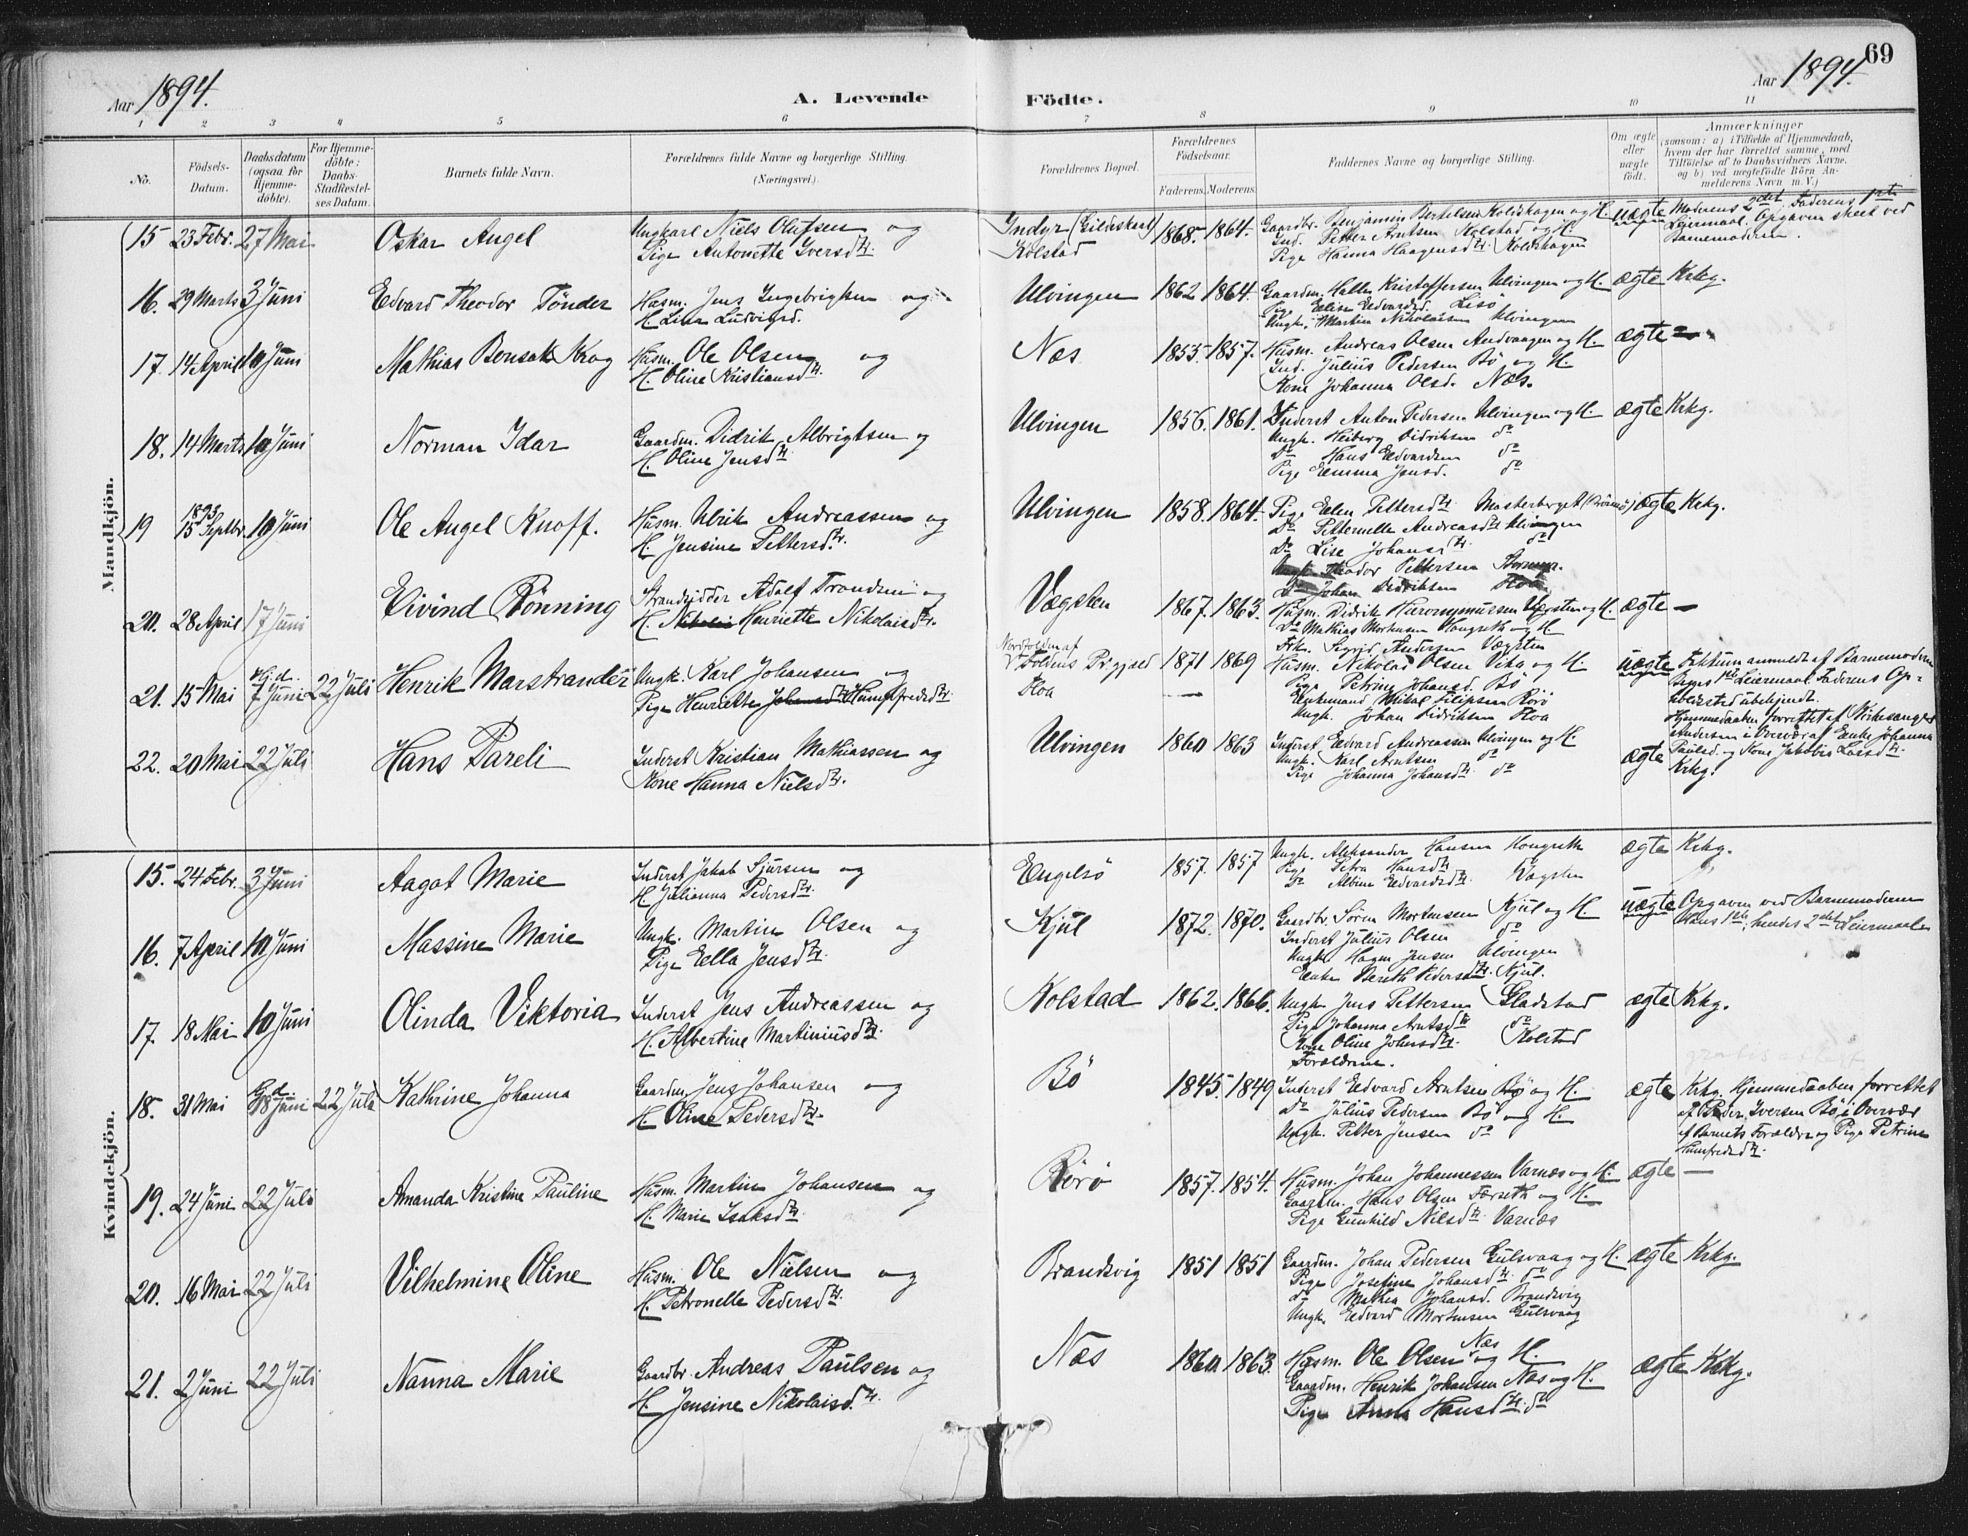 69
Aar 1894.
A. Levende Födte.
Aar 1894.
1 2 3 4 5 6 7 8 9 10 11
No.
Födsels-Datum.
Daabsdatum (ogsaa for Hjemme-döbte).
For Hjemme-döbte: Daabs-Stadfæstel-ses Datum.
Barnets fulde Navn.
Forældrenes fulde Navne og borgerlige Stilling. (Næringsvei.)
Forældrenes Bopæl.
Forældrenes Födselsaar.
Faderens. Moderens.
Faddernes Navne og borgerlige Stilling.
Om ægte eller uægte födt.
Anmærkninger
(saasom: a) i Tilfælde af Hjemmedaab, hvem der har forrettet samme, med Tilföielse af to Daabsvidners Navne. og b) ved uægtefödte Börn An-melderens Navn m. V.)
Mandkjön.
15 23 Febr. 27 Mai Oskar Angel
Ungkarl Niels Olufsen og
Pige Antonette Iversdtr.
Indyr (Gildeskaal)
Kolstad
1868. 1864.
Gaardbr. Benjamin Bertelsen Koldshagen og H.
Ind. Petter Arntsen Kolstad og H.
Pige Hanna Haagensdtr. Koldshagen
uægte
Moderens 2det, Faderens 1ste
Leiermaal. Opgaven skeet ved
Barnemoderen.
16. 29 Marts 3 Juni Edvard Theodor Tönder
Husm. Jens Ingebrigtsen og
H. Lina Ludvigsd.
Ulvingen 1862 1864.
Gaardm. Helle Kristoffersen Ulvingen og H.
Pige Elise Edvardsd. Lisö
Ungk. Martin Nikolaisen Ulvingen
ægte Krkg.
17. 14 April 10 Juni Mathias Bonsak Krog
Husm. Ole Olsen og
H. Oline Kristiansdtr.
Næs 1855 1857.
Husm. Andreas Olsen Andvaagen og H.
Ind. Julius Pedersen Bö og H.
Kone Johanna Olsd. Næs.
ægte —
18. 14 Marts 10 Juni Norman Idar
Gaardm. Didrik Albrigtsen og
H. Oline Jensdtr.
Ulvingen 1856. 1861.
Inderst Anton Pedersen Ulvingen og H.
Ungk. Heiberg Didriksen do
Do Hans Edvardsen do
Pige Emma Jensd. do
ægte Krkg.
19 1893 15 Septbr. 10 Juni Ole Angel Knoff.
Husm. Ulrik Andreassen og
H. Jensine Pettersdtr.
Ulvingen 1858. 1864.
Pige Elen Pettersdtr.
Do Petternelle Andreasdtr. Ulvingen
Do Lise Johansdtr. do
Ungk. Theodor Pettersen
Do Johan Didriksen Hoa
ægte Krkg.
20. 28 April 17 Juni Eivind Rönning
Strandsidder Adolf Trondsen og
H. Henriette Nikolaisdtr.
Vægsten 1867. 1863.
Husm. Didrik Hieronymussen Vægsten og H.
Do Mathias Mortensen Kongreth og H.
Frk. Sigrid Andersen Vægsten
ægte —
21. 15 Mai Hj. d. 7 Juni 22 Juli Henrik Marstrander
Ungk. Karl Johansen og
Pige Henriette Humfrefdsdtr.
Nordfolden af
Foldens Prgjæld
Hoa
1871 1869
Husm. Nikolai Olsen Vika og H.
Pige Petrine Johansd. Bö
Enkemand Mikal Filipsen Rörö
Ungk. Johan Didriksen Hoa
uægte
Faktum anmeldt af Barnemoderen
Begges 1ste Leiermaal. Faderens Op-
holdssted ubekjendt.
Hjemmedaaben forrettet af Kirkesanger
Andersen i Overvær af Enke Johanna
Paulsd. og Kone Jakobia Larsdtr.
22. 20 Mai 22 Juli Hans Pareli
Inderst Kristian Mathiassen og
Kone Hanna Nielsdtr.
Ulvingen 1860 1863
Inderst Edvard Andreassen Ulvingen og H
Ungk. Karl Arntsen do
Pige Johanna Johansdtr. do
ægte Krkg.
Kvindekjön.
15. 24 Febr. 3 Juni Aagot Marie
Inderst Jakob Sjursen og
H. Julianna Pedersdtr.
Engelsö 1857. 1857
Ungk. Aleksander Hansen Kongreth
Pige Petra Hansdtr.
Do Albine Edvardsdtr. Vægsten
ægte Krkg.
16. 7 April 10 Juni Massine Marie
Ungk. Martin Olsen og
Pige Ella Jensdtr.
Kjul 1872. 1870.
Gaardbr. Sören Mortensen Kjul og H.
Inderst Julius Olsen do
Ungk. Hagen Jensen Ulvingen
Enke Bereth Pedersdtr. Kjul.
uægte
Opgaven ved Barnemoderen
Hans 1ste, hendes 2det Leiermaal
17. 18 Mai 10 Juni Olinda Viktoria
Inderst Jens Andreassen og
H. Albertine Martiniusdtr.
Kolstad 1862. 1866.
Ungk. Jens Pettersen Gladstad
Pige Johanna Arntsdtr. do
Kone Oline Johnsdtr. Kolstad
Forældrene.
ægte Krkg.
18. 31 Mai Hj. d. 18 Juni 22 Juli Kathrine Johanna
Gaardm. Jens Johansen og
H. Oline Pedersdtr.
Bö 1845. 1849
Inderst Edvard Arntsen Bö og H.
Do Julius Pedersen Bö og H.
Ungk. Petter Jensen do
ægte
Krkg. Hjemmedaaben forrettet
af Peder Iversen Bö i Overvær
af Barnets Forældre og Pige Petrine
Humfredsdtr.
19. 24 Juni 22 Juli Amanda Kristine Pauline
Husm. Martin Johansen og
H. Marie Isaksdtr.
Rörö 1857. 1854.
Husm. Johan Johannessen Varnæs og H.
Gaardm. Hans Olsen Færseth og H.
Pige Gunhild Nilsdtr. Varnæs
ægte —
20. 16 Mai 22 Juli Vilhelmine Oline
Husm. Ole Nielsen og
H. Petronelle Pedersdtr.
Brandsvig 1851 1851
Gaardm. Johan Pedersen Gulsvaag og H.
Pige Josefine Johansdtr. do
do Mathea Johansd. Brandsvig
Ungk. Edvard Mortensen Gulsvaag
ægte Krkg.
21. 2 Juni 22 Juli Nanna Marie
Gaardbr. Andreas Paulsen og
H. Jensine Nikolaisdtr.
Næs 1860. 1863.
Husm. Ole Olsen Næs og H.
Gaardm. Henrik Johansen Næs og H.
Pige Anna Hansdtr. do
ægte Krkg.